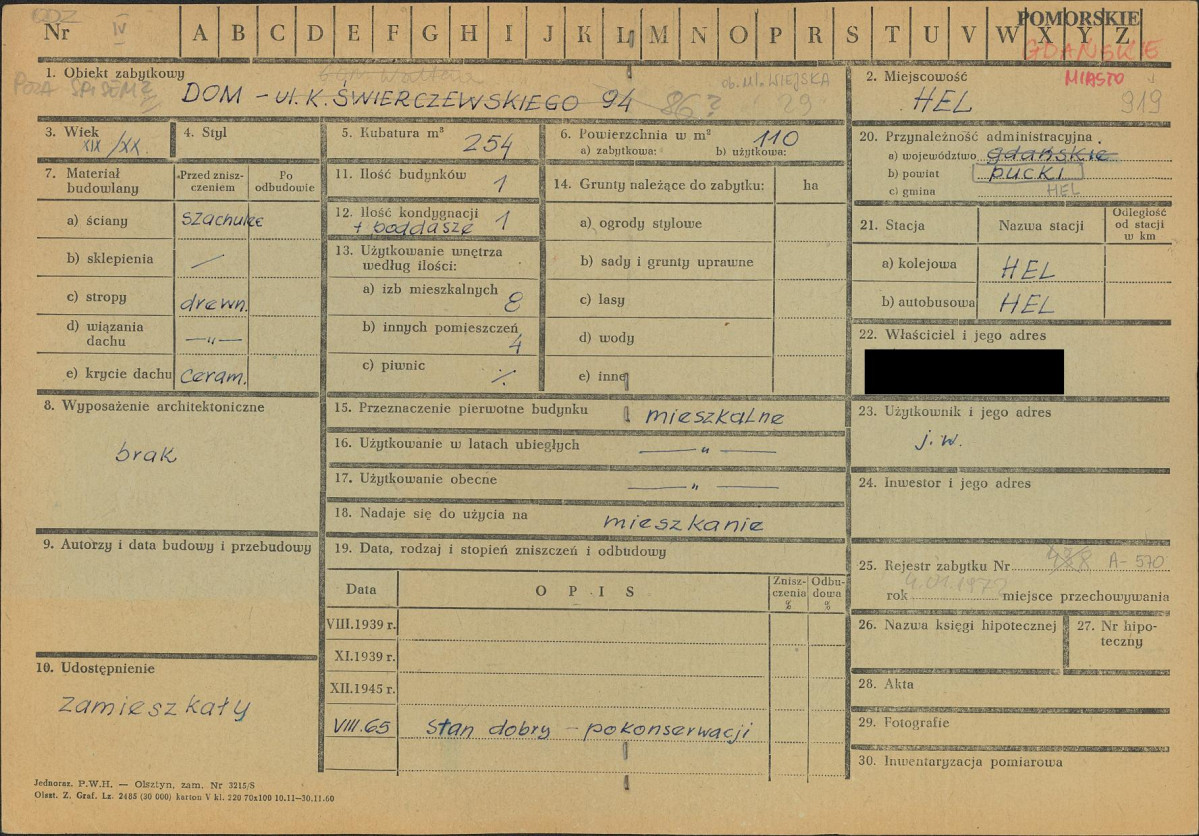 ODZ
Nr IV A B C D E F G H I J K L Ł M N O P R S T U V W X Y Z
POMORSKIE
GDAŃSKIE
MIASTO
1. Obiekt zabytkowy
POZA SPISEM?
DOM - ul. K. ŚWIERCZEWSKIEGO 94 86?
ob. ul. WIEJSKA
29
2. Miejscowość
HEL 919
3. Wiek
XIX/XX.
4. Styl
5. Kubatura m³
254
6. Powierzchnia w m²
110
a) zabytkowa: b) użytkowa:
7. Materiał budowlany
Przed zniszczeniem
Po odbudowie
a) ściany szachulec
b) sklepienia /
c) stropy drewn.
d) wiązania dachu —"—
e) krycie dachu ceram.
8. Wyposażenie architektoniczne
brak
9. Autorzy i data budowy i przebudowy
10. Udostępnienie
zamieszkały
11. Ilość budynków 1
12. Ilość kondygnacji 1
+ poddasze
13. Użytkowanie wnętrza według ilości:
a) izb mieszkalnych 8
b) innych pomieszczeń 4
c) piwnic ·/.
14. Grunty należące do zabytku: ha
a) ogrody stylowe
b) sady i grunty uprawne
c) lasy
d) wody
e) inne
15. Przeznaczenie pierwotne budynku mieszkalne
16. Użytkowanie w latach ubiegłych —"—
17. Użytkowanie obecne —"—
18. Nadaje się do użycia na mieszkanie
19. Data, rodzaj i stopień zniszczeń i odbudowy
Data OPIS Zniszczenia % Odbudowa %
VIII.1939 r.
XI.1939 r.
XII.1945 r.
VIII.65 stan dobry - po konserwacji
20. Przynależność administracyjna
a) województwo gdańskie
b) powiat pucki
c) gmina HEL
21. Stacja Nazwa stacji Odległość od stacji w km
a) kolejowa HEL
b) autobusowa HEL
22. Właściciel i jego adres
23. Użytkownik i jego adres
j.w.
24. Inwestor i jego adres
25. Rejestr zabytku Nr A-570
rok miejsce przechowywania
26. Nazwa księgi hipotecznej
27. Nr hipoteczny
28. Akta
29. Fotografie
30. Inwentaryzacja pomiarowa
Jednoraz. P.W.H. — Olsztyn, zam. Nr 3215/S
Olszt. Z. Graf. Lz. 2485 (30 000) karton V kl. 220 70x100 10.11—30.11.60